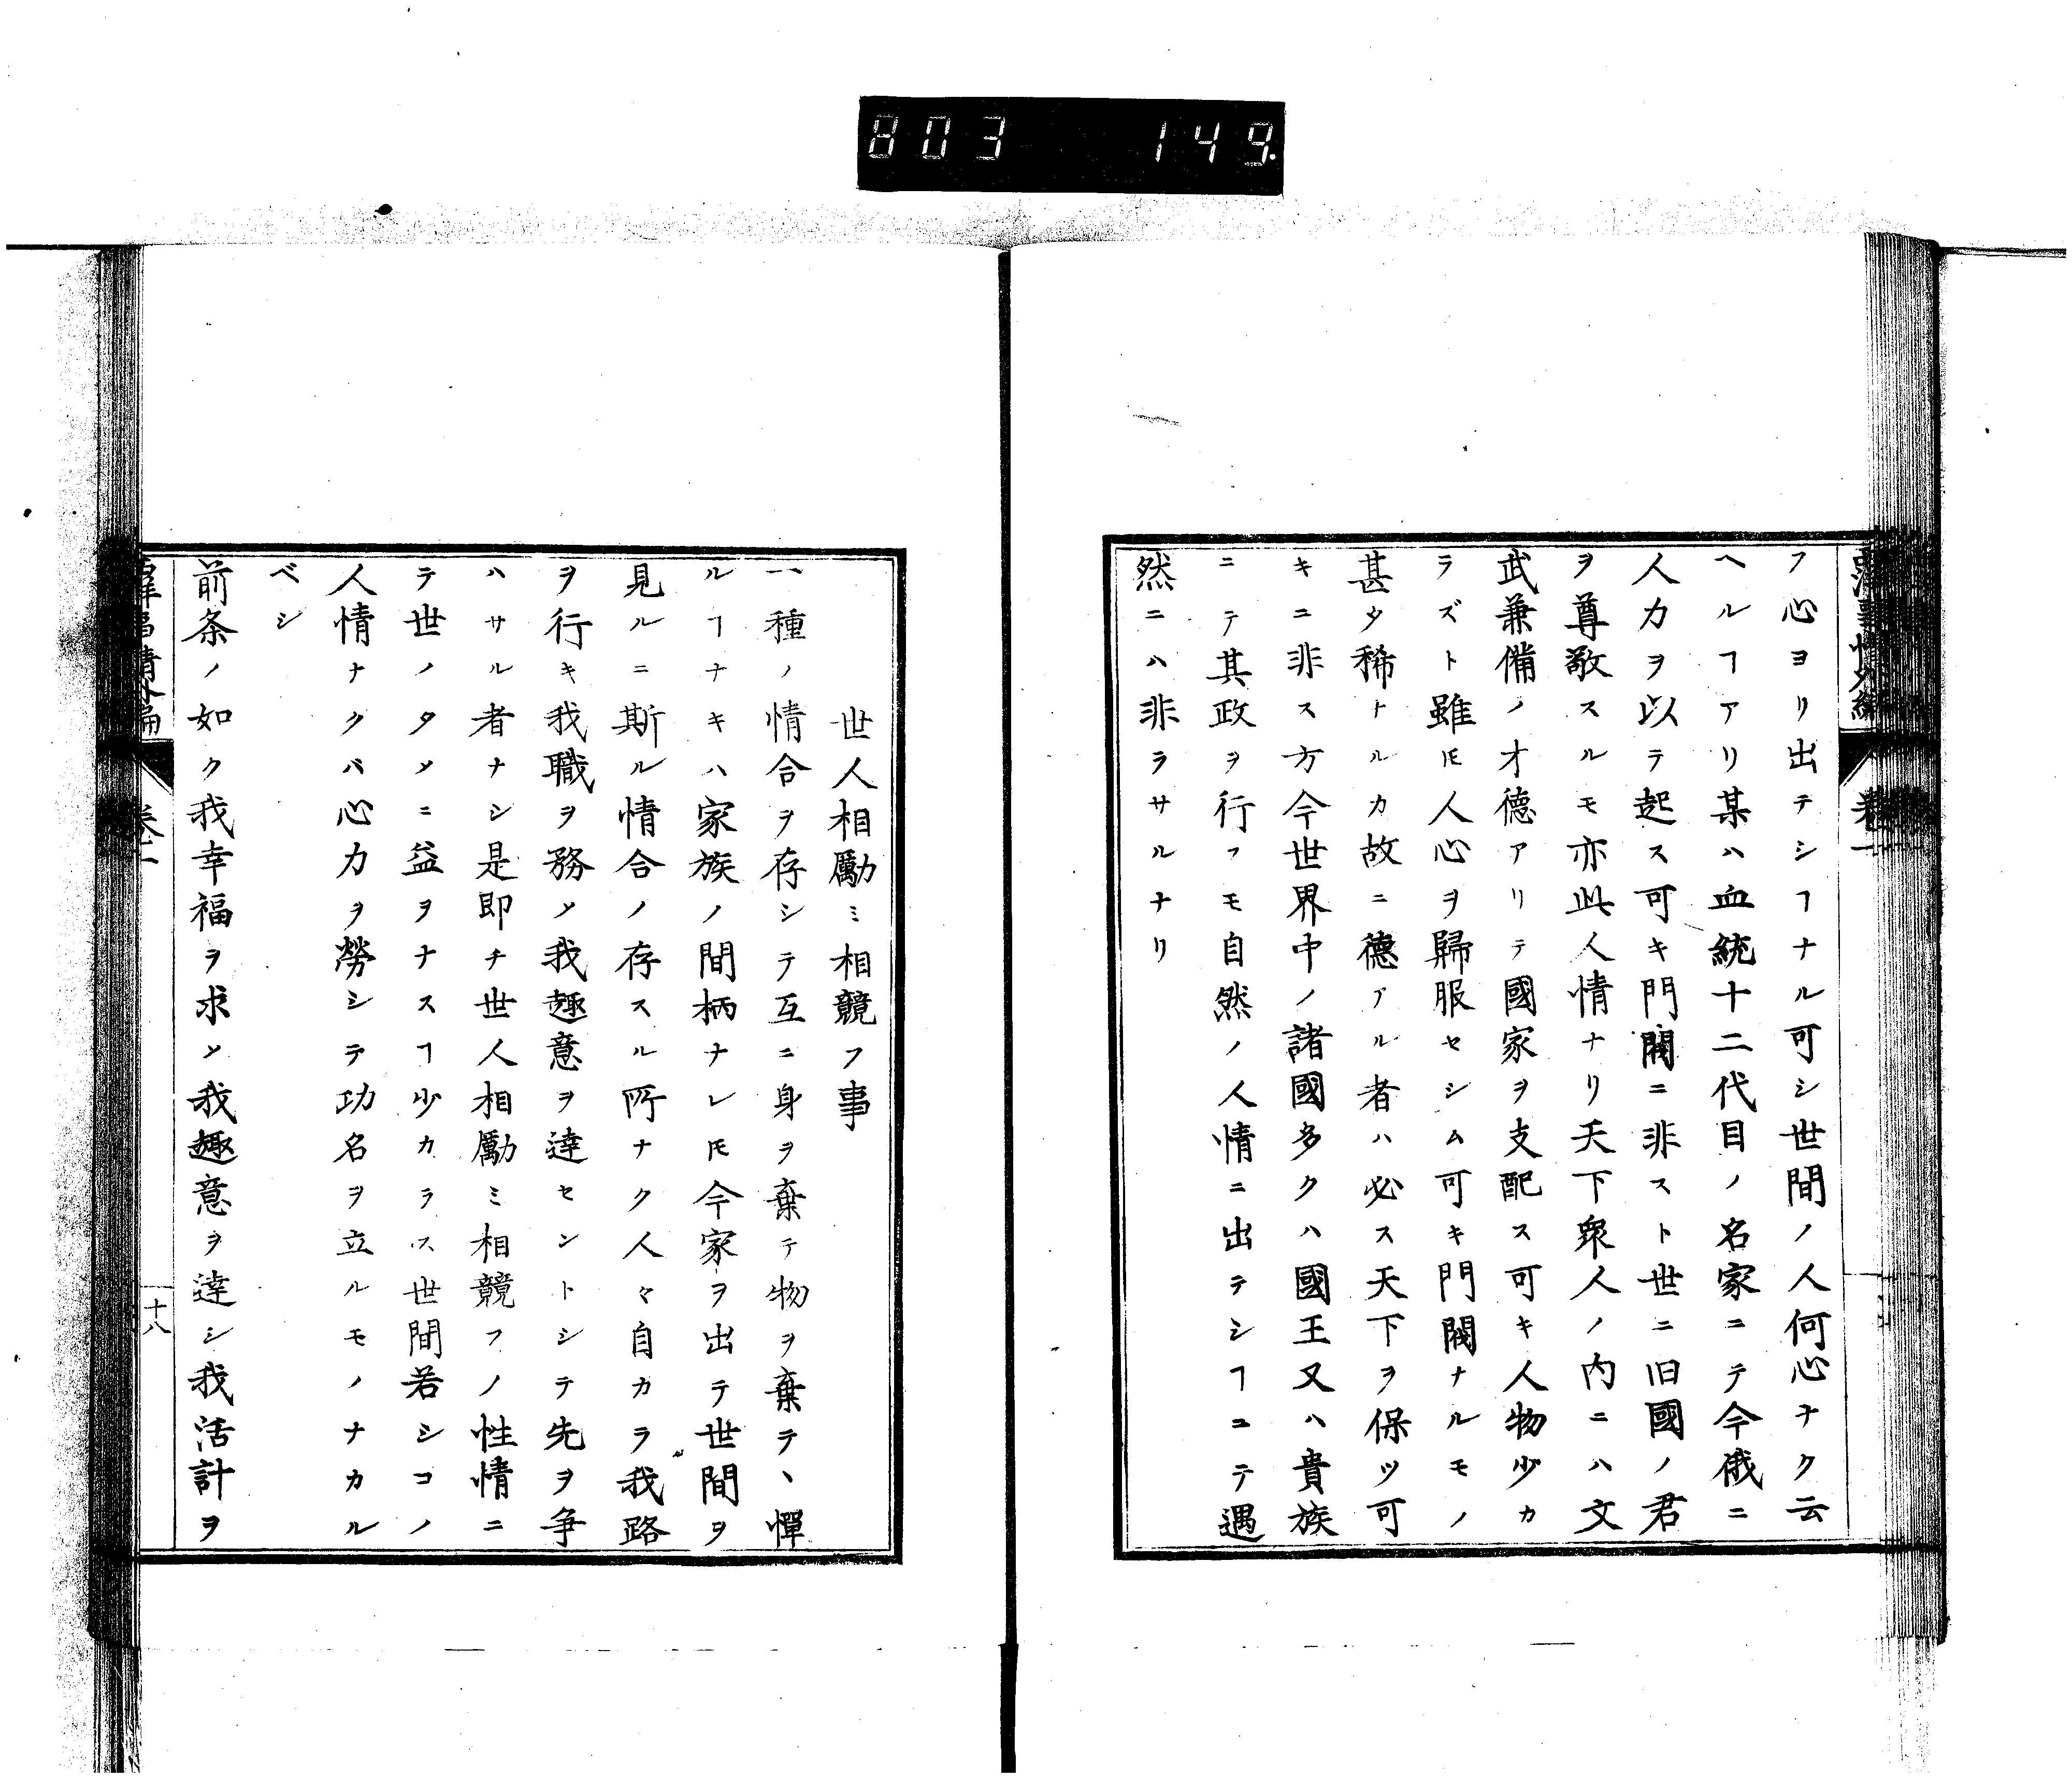 803 149
フ心ヨリ出テシヿナル可シ世間ノ人何心ナク云
ヘルヿアリ某ハ血統十二代目ノ名家ニテ今俄ニ
人力ヲ以テ起ス可キ門閥ニ非スト世ニ旧國ノ君
ヲ尊敬スルモ亦此人情ナリ天下衆人ノ内ニハ文
武兼備ノ才德アリテ國家ヲ支配ス可キ人物少カ
ラズト雖𪜈人心ヲ歸服セシム可キ門閥ナルモノ
甚タ稀ナルカ故ニ德アル者ハ必ス天下ヲ保ツ可
キニ非ス方今世界中ノ諸國多クハ國王又ハ貴族
ニテ其政ヲ行フモ自然ノ人情ニ出テシヿニテ遇
然ニハ非ラサルナリ
世人相勵ミ相競フ事
一種ノ情合ヲ存シテ互ニ身ヲ棄テ物ヲ棄テヽ憚
ルヿナキハ家族ノ間柄ナレ𪜈今家ヲ出テ世間ヲ
見ルニ斯ル情合ノ存スル所ナク人々自カラ我路
ヲ行キ我職ヲ務メ我趣意ヲ達セントシテ先ヲ争
ハサル者ナシ是即チ世人相勵ミ相競フノ性情ニ
テ世ノタメニ益ヲナスヿ少カラス世間若シコノ
人情ナクバ心力ヲ勞シテ功名ヲ立ルモノナカル
ベシ
前条ノ如ク我幸福ヲ求メ我趣意ヲ達シ我活計ヲ
十八